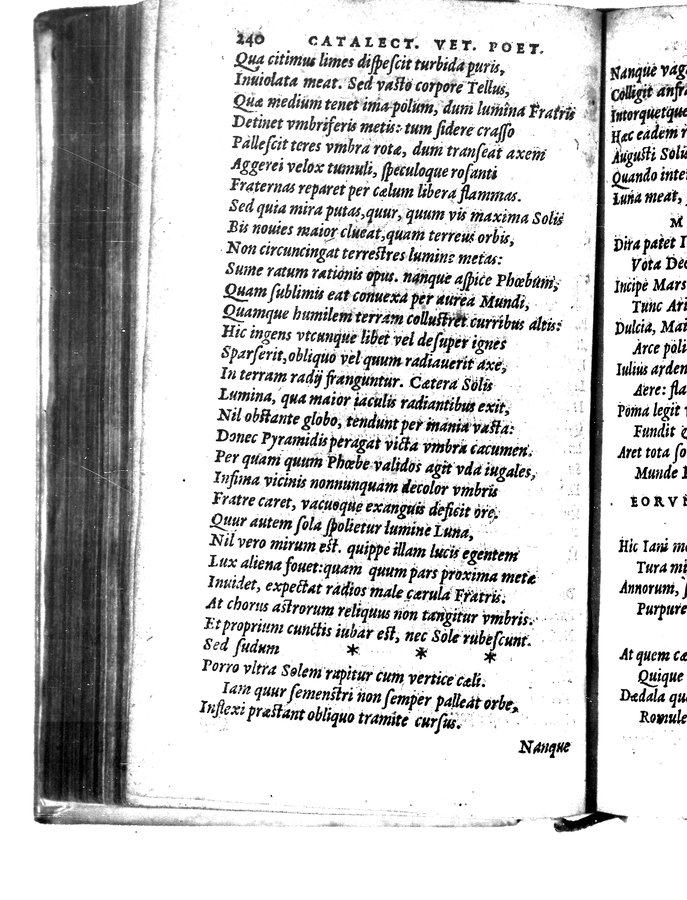 240 CATALECT. VET. POET.
Qua citimus limes dispescit turbida puris,
Inuiolata meat. Sed vasto corpore Tellus,
Quæ medium tenet ima polum, dum lumina Fratris
Detinet vmbriferis metis: tum sidere crasso
Pallescit teres vmbra rotæ, dum transeat axem
Aggerei velox tumuli, speculoque rosanti
Fraternas reparet per cælum libera flammas.
Sed quia mira putas, quur, quum vis maxima Solis
Bis nouies maior clueat, quam terreus orbis,
Non circuncingat terrestres lumine metas:
Sume ratum rationis opus. nanque aspice Phœbum,
Quam sublimis eat conuexa per aurea Mundi,
Quamque humilem terram collustret curribus altis:
Hic ingens vtcunque libet vel desuper ignes
Sparserit, obliquo vel quum radiauerit axe,
In terram radij franguntur. Cætera Solis
Lumina, qua maior iaculis radiantibus exit,
Nil obstante globo, tendunt per inania vasta:
Donec Pyramidis peragat victa vmbra cacumen.
Per quam quum Phœbe validos agit vda iugales,
Infima vicinis nonnunquam decolor vmbris
Fratre caret, vacuoque exanguis deficit ore.
Quur autem sola spolietur lumine Luna,
Nil vero mirum est. quippe illam lucis egentem
Lux aliena fouet: quam quum pars proxima metæ
Inuidet, expectat radios male cærula Fratris.
At chorus astrorum reliquus non tangitur vmbris:
Et proprium cunctis iubar est, nec Sole rubescunt.
Sed sudum * * *
Porro vltra Solem rapitur cum vertice cæli.
Iam quur semenstri non semper palleat orbe,
Inflexi præstant obliquo tramite cursus.
Nanque
Nanque
Colligit
Intorquetque
Hæc eadem
Augusti
Quando
Luna meat,
M
Dira patet
Vota
Incipe Mars
Tunc
Dulcia,
Arce
Iulius
Aere:
Poma legit
Fundit
Aret tota
Munde
Hic Iani
Tura
Annorum,
At quem
Quique
Dædala